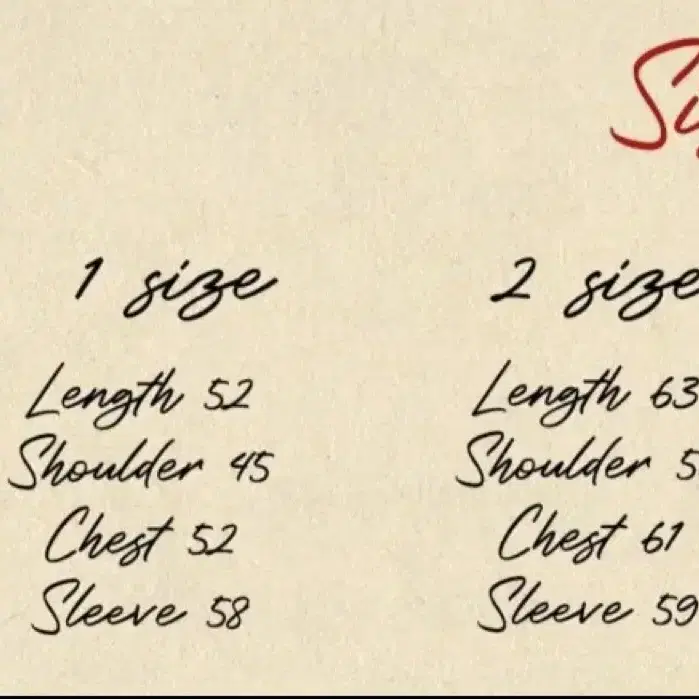 1 size
Length 52
Shoulder 45
Chest 52
Sleeve 58
2 size
Length 63
Shoulder 5
Chest 61
Sleeve 59